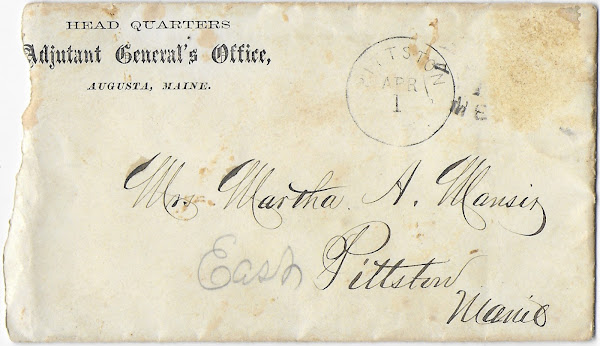 HEAD QUARTERS
Adjutant General's Office,
AUGUSTA, MAINE.
PITTSTON
APR
1
Mrs Martha A. Mansir
East Pittston
Maine